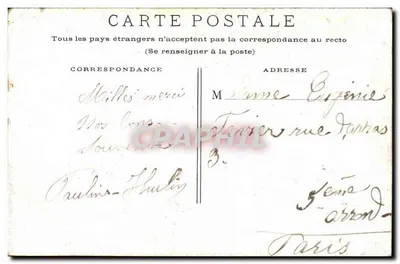 CARTE POSTALE
Tous les pays étrangers n'acceptent pas la correspondance au recto
(Se renseigner à la poste)
CORRESPONDANCE
Milles merci
Nos bons
Pauline Hulin
ADRESSE
M Eugénie
rue d'arras
3.
5ème
arrond
Paris
CPAPHIL